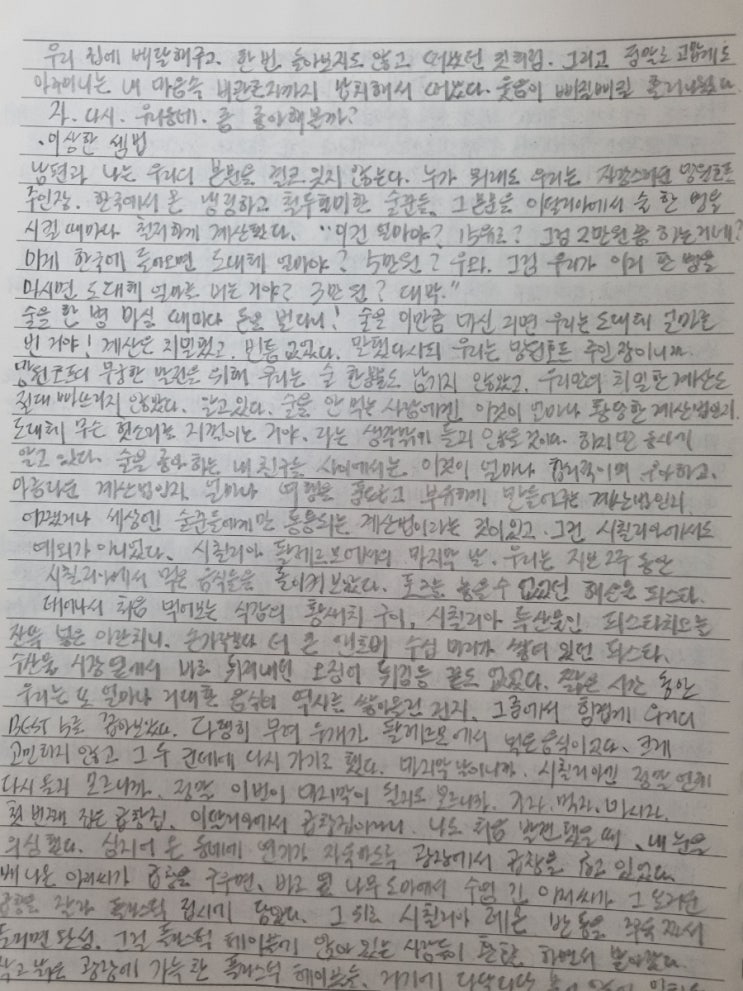 우리 집에 배달해주고, 한 번 돌아보지도 않고 떠났던 것처럼. 그리고 정말로 고맙게도
아주머니는 내 마음속 비관론자까지 납치해서 떠났다. 웃음이 삐질삐질 흘러나왔다.
자. 다시. 우리동네. 좀 좋아해볼까?
·이상한 셈법
남편과 나는 우리의 본분을 결코 잊지 않는다. 누가 뭐래도 우리는 자랑스러운 망원호프
주인장. 한국에서 온 냉정하고 철두철미한 술꾼들. 그 본분을 이탈리아에서 술 한 병을
시킬 때마다 철저하게 계산한다. "이건 얼마야? 15유로? 그럼 2만원 좀 하는거네?
이게 한국에 들어오면 도대체 얼마야? 5만원? 우와. 그럼 우리가 이거 한 병을
마시면 도대체 얼마를 버는 거야? 3만 원? 대박."
술을 한 병 마실 때마다 돈을 번다니! 술을 이만큼 마신 거면 우리는 도대체 얼마를
번 거야! 계산은 치밀했고, 빈틈 없었다. 말했다시피 우리는 망원호프 주인장이니까.
망원호프의 무궁한 발전을 위해 우리는 술 한방울도 남기지 않았고, 우리만의 치밀한 계산도
절대 빠뜨리지 않았다. 알고 있다. 술을 안 먹는 사람에겐 이것이 얼마나 황당한 계산법인지.
도대체 무슨 헛소리를 지껄이는 거야. 라는 생각밖에 들지 않을 것이다. 하지만 동시에
알고 있다. 술을 좋아하는 내 친구들 사이에서는 이것이 얼마나 합리적이며 우아하고,
아름다운 계산법인지. 얼마나 여행을 풍요롭고 부유하게 만들어주는 계산법인지
어쨌거나 세상엔 술꾼들에게만 통용되는 계산법이라는 것이 있고. 그건 시칠리아에서도
예외가 아니었다. 시칠리아 팔레르모에서의 마지막 날. 우리는 지난 2주 동안
시칠리아에서 먹은 음식들을 돌이켜보았다. 포크를 놓을 수 없었던 해산물 파스타.
태어나서 처음 먹어보는 식감의 황새치 구이, 시칠리아 특산물인 피스타치오를
잔뜩 넣은 아란치니. 손가락보다 더 큰 앤초비 수십 마리가 쌓여 있던 파스타.
수산물 시장 옆에서 바로 튀겨내던 오징어 튀김등 끝도 없었다. 짧은 시간 동안
우리는 또 얼마나 거대한 음식의 역사를 쌓아올린 건지. 그중에서 힘겹게 우리의
BEST 5를 꼽아보았다. 다행히 무려 두개가 팔레르모에서 먹은 음식이었다. 크게
고민하지 않고 그 두 군데에 다시 가기로 했다. 마지막 날이니까. 시칠리아엔 정말 언제
다시 올지 모르니까. 정말 이번이 마지막이 될지도 모르니까. 가자. 먹자. 마시자.
첫 번째 집은 곱창집. 이탈리아에서 곱창집이라니. 나도 처음 발견했을 때, 내 눈을
의심했다. 심지어 온 동네에 연기가 자욱하도록 광장에서 곱창을 굽고 있었다.
배 나온 아저씨가 곱창을 구우면, 바로 옆 나무 도마에서 수염 긴 아저씨가 그 뜨거운
곱창을 잘라 플라스틱 접시에 담았다. 그 위로 시칠리아 레몬 반 통을 쭈욱 짜서
뿌리면 완성. 그럼 플라스틱 테이블에 앉아 있는 사람들이 환호 하면서 받아갔다.
작고 낡은 광장에 가득 찬 플라스틱 테이블들. 거기에 다닥다닥